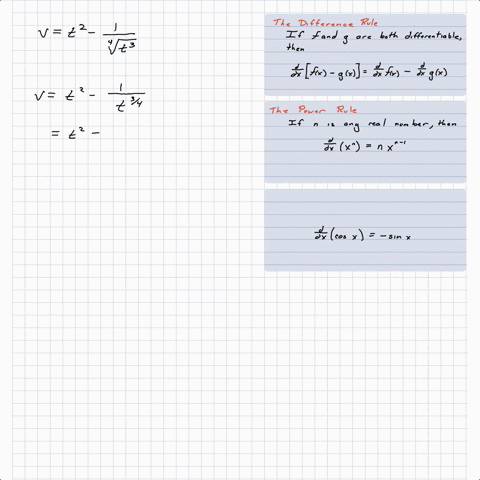 v = t² - 1/⁴√t³
v = t² - 1/t^3/4
= t² -
The Difference Rule
If f and g are both differentiable,
then
d/dx [f(x) - g(x)] = d/dx f(x) - d/dx g(x)
The Power Rule
If n is any real number, then
d/dx (xⁿ) = n xⁿ⁻¹
d/dx (cos x) = -sin x